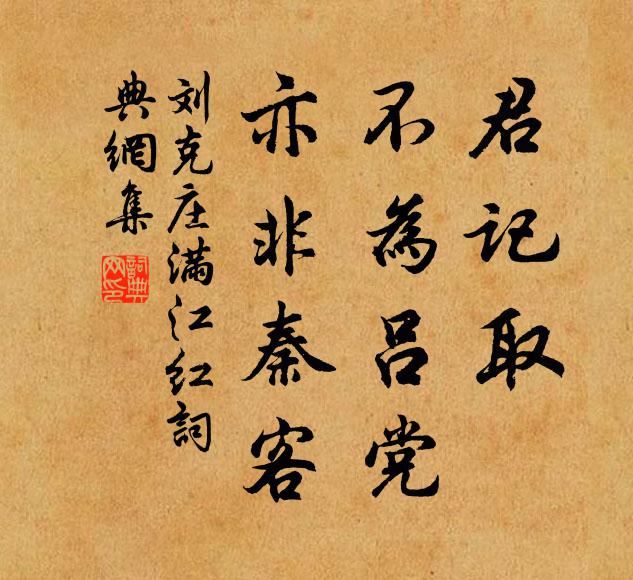 君记取
不為吕党
亦非秦客
刘克庄满江红詞
典網集
詞典网印